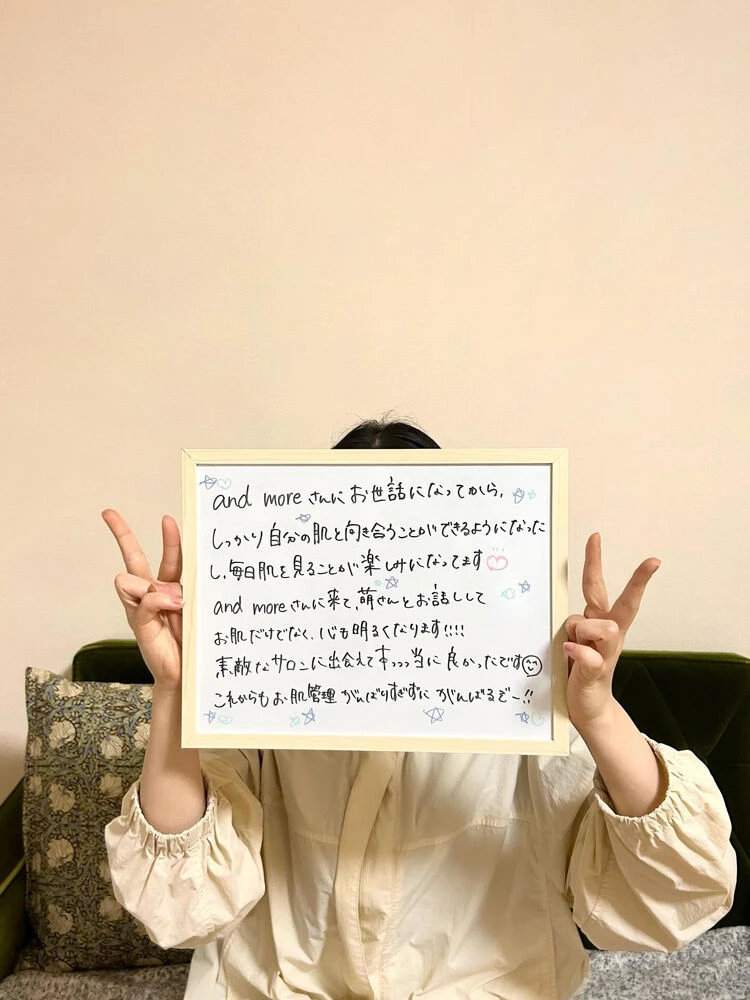 and more さんにお世話になってから、
しっかり自分の肌と向き合うことができるようになった
し、毎日肌を見ることが楽しみになってます
and more さんに来て、萌さんとお話しして
お肌だけでなく、心も明るくなります!!!!
素敵なサロンに出会えて本っっっ当に良かったです
これからもお肌管理がんばりすぎずにがんばるぞー!!